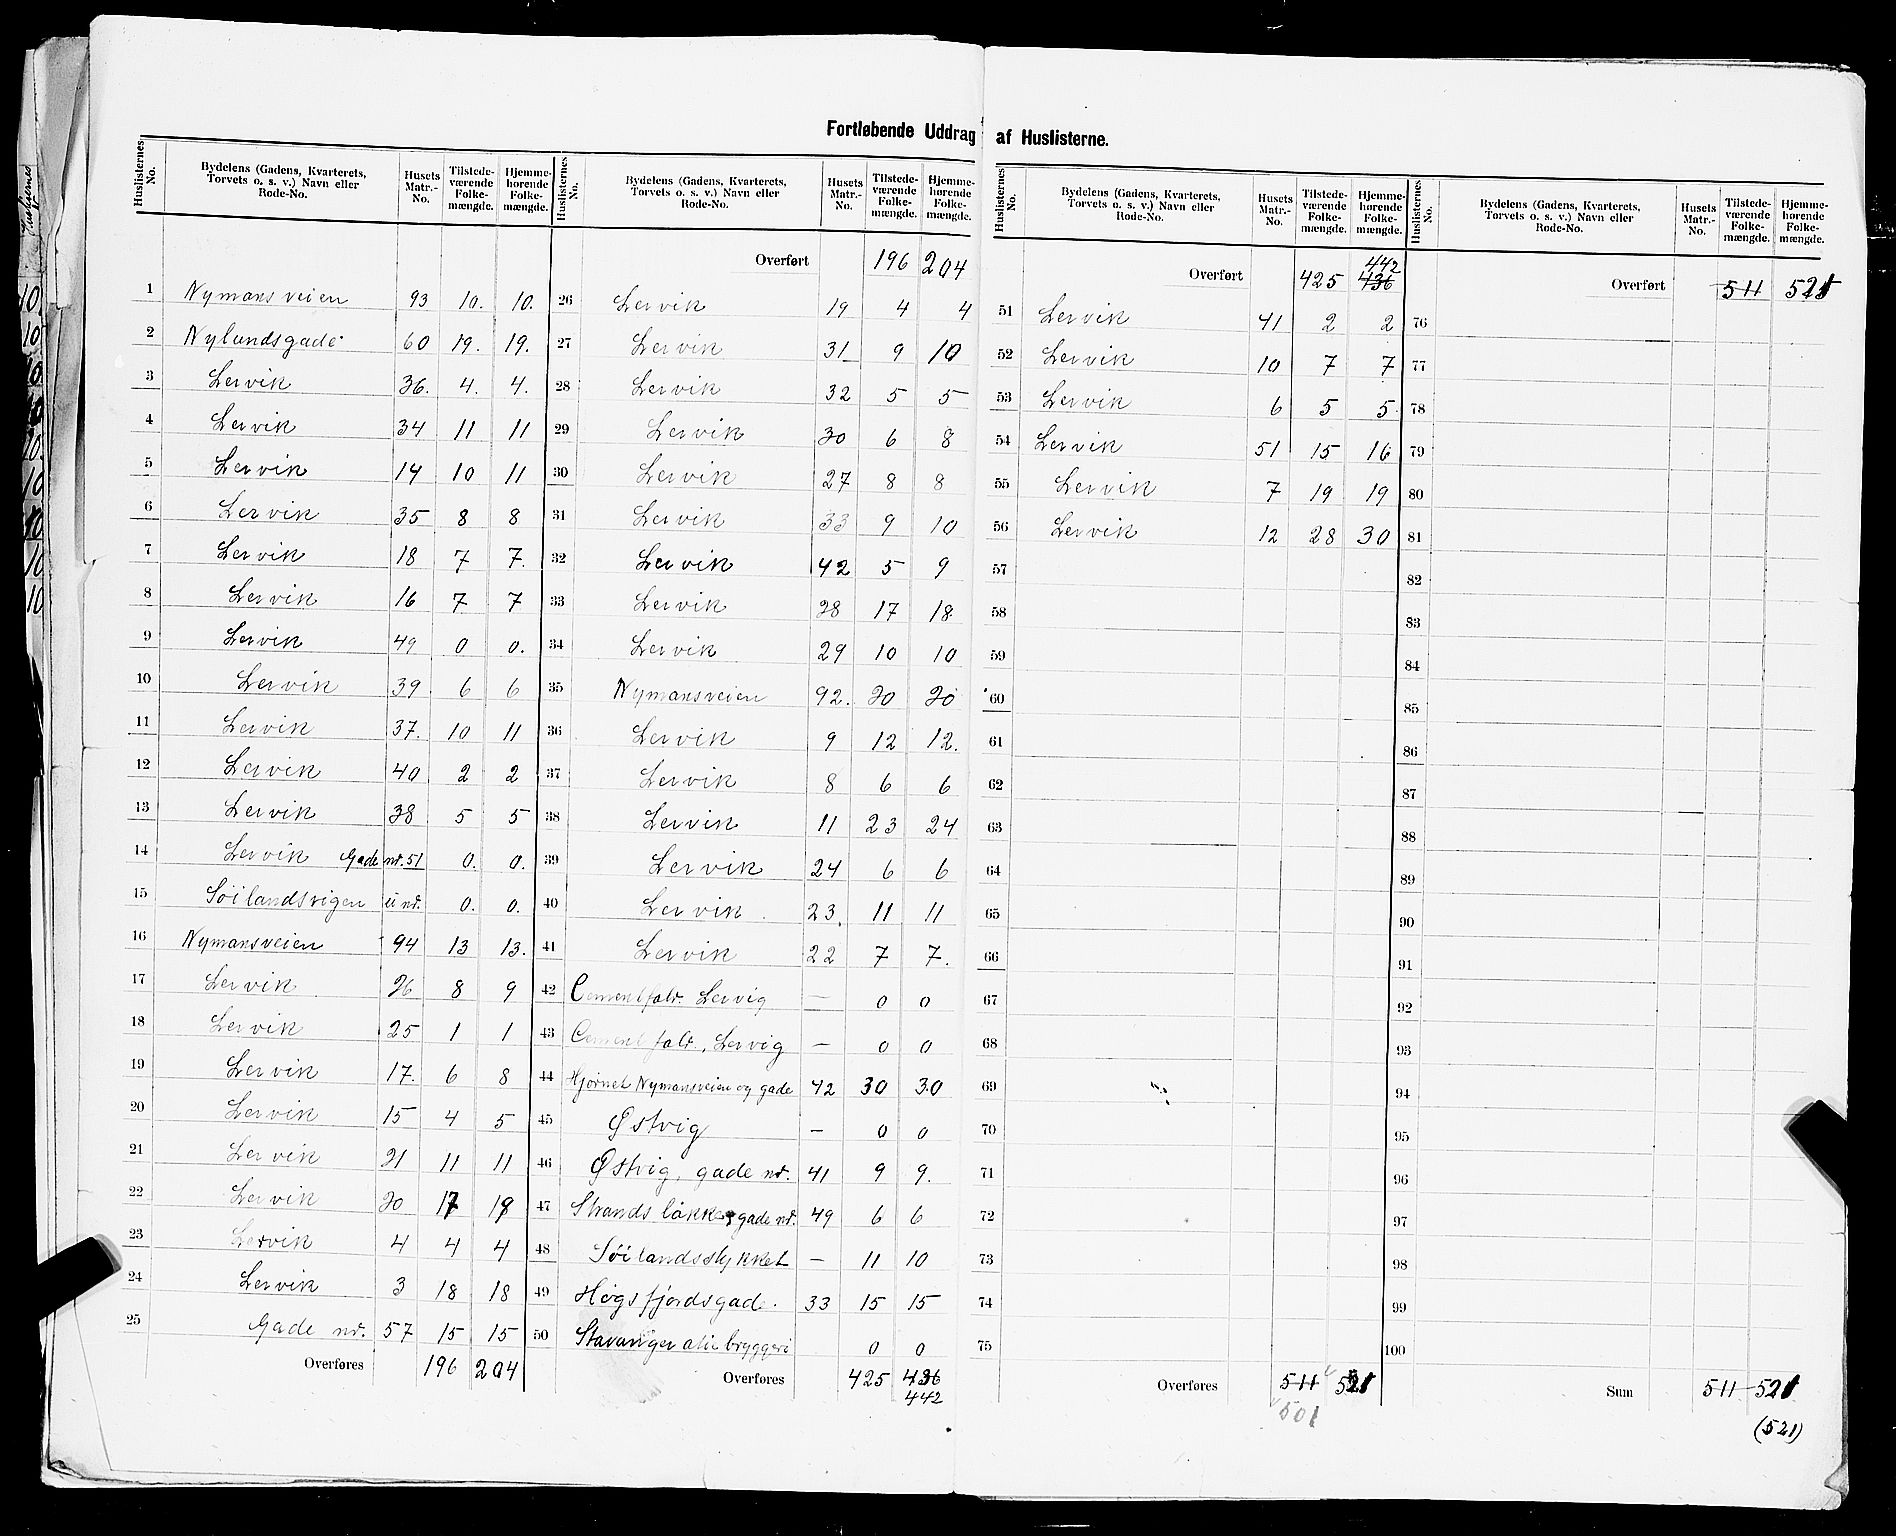 Fortløbende Uddrag af Huslisterne.
Huslisternes No. | Bydelens (Gadens, Kvarterets, Torvets o. s. v.) Navn eller Rode-No. | Husets Matr.-No. | Tilstede-værende Folke-mængde. | Hjemme-hørende Folke-mængde.
1 Nymansveien 93 10. 10.
2 Nylandsgade 60 19. 19.
3 Lervik 36. 4. 4.
4 Lervik 34 11 11
5 Lervik 14 10 11
6 Lervik 35 8 8
7 Lervik 18 7 7.
8 Lervik 16 7 7
9 Lervik 49 0 0.
10 Lervik 39 6 6
11 Lervik 37. 10 11
12 Lervik 40 2 2
13 Lervik 38 5 5
14 Lervik Gade nr. 51 0. 0.
15 Søilandsvigen u nr. 0. 0.
16 Nymansveien 94 13 13.
17 Lervik 26 8 9
18 Lervik 25 1 1
19 Lervik 17. 6 8
20 Lervik 15 4 5
21 Lervik 21 11 11
22 Lervik 20 17 19
23 Lervik 4 4 4
24 Lervik 3 18 18
25 Gade nr. 57 15 15
Overføres 196 204
Huslisternes No. | Bydelens (Gadens, Kvarterets, Torvets o. s. v.) Navn eller Rode-No. | Husets Matr.-No. | Tilstede-værende Folke-mængde. | Hjemme-hørende Folke-mængde.
Overført 196 204
26 Lervik 19 4 4
27 Lervik 31 9 10
28 Lervik 32 5 5
29 Lervik 30 6 8
30 Lervik 27 8 8
31 Lervik 33 9 10
32 Lervik 42 5 9
33 Lervik 28 17 18
34 Lervik 29 10 10
35 Nymansveien 92. 20 20
36 Lervik 9 12 12.
37 Lervik 8 6 6
38 Lervik 11 23 24
39 Lervik 24 6 6
40 Lervik 23. 11 11
41 Lervik 22 7 7.
42 Cementfabr. Lervig — 0 0
43 Cementfabr., Lervig — 0 0
44 Hjørnet Nymansveien og gade 42 30 30
45 Østvig — 0 0
46 Østvig, gade nr. 41 9 9.
47 Strandsløkken gade nr. 49 6 6
48 Søilandsstykket — 11 10
49 Høgsfjordsgade. 33 15 15
50 Stavanger aktie bryggeri 0 0
Overføres 425 436
442
Huslisternes No. | Bydelens (Gadens, Kvarterets, Torvets o. s. v.) Navn eller Rode-No. | Husets Matr.-No. | Tilstede-værende Folke-mængde. | Hjemme-hørende Folke-mængde.
442
Overført 425 436
51 Lervik 41 2 2
52 Lervik 10 7 7
53 Lervik 6 5 5.
54 Lervik 51 15 16
55 Lervik 7 19 19
56 Lervik 12 28 30
57
58
59
60
61
62
63
64
65
66
67
68
69
70
71
72
73
74
75
Overføres 511 521
501
Huslisternes No. | Bydelens (Gadens, Kvarterets, Torvets o. s. v.) Navn eller Rode-No. | Husets Matr.-No. | Tilstede-værende Folke-mængde. | Hjemme-hørende Folke-mængde.
Overført 511 521
76
77
78
79
80
81
82
83
84
85
86
87
88
89
90
91
92
93
94
95
96
97
98
99
100
Sum 511 521
(521)